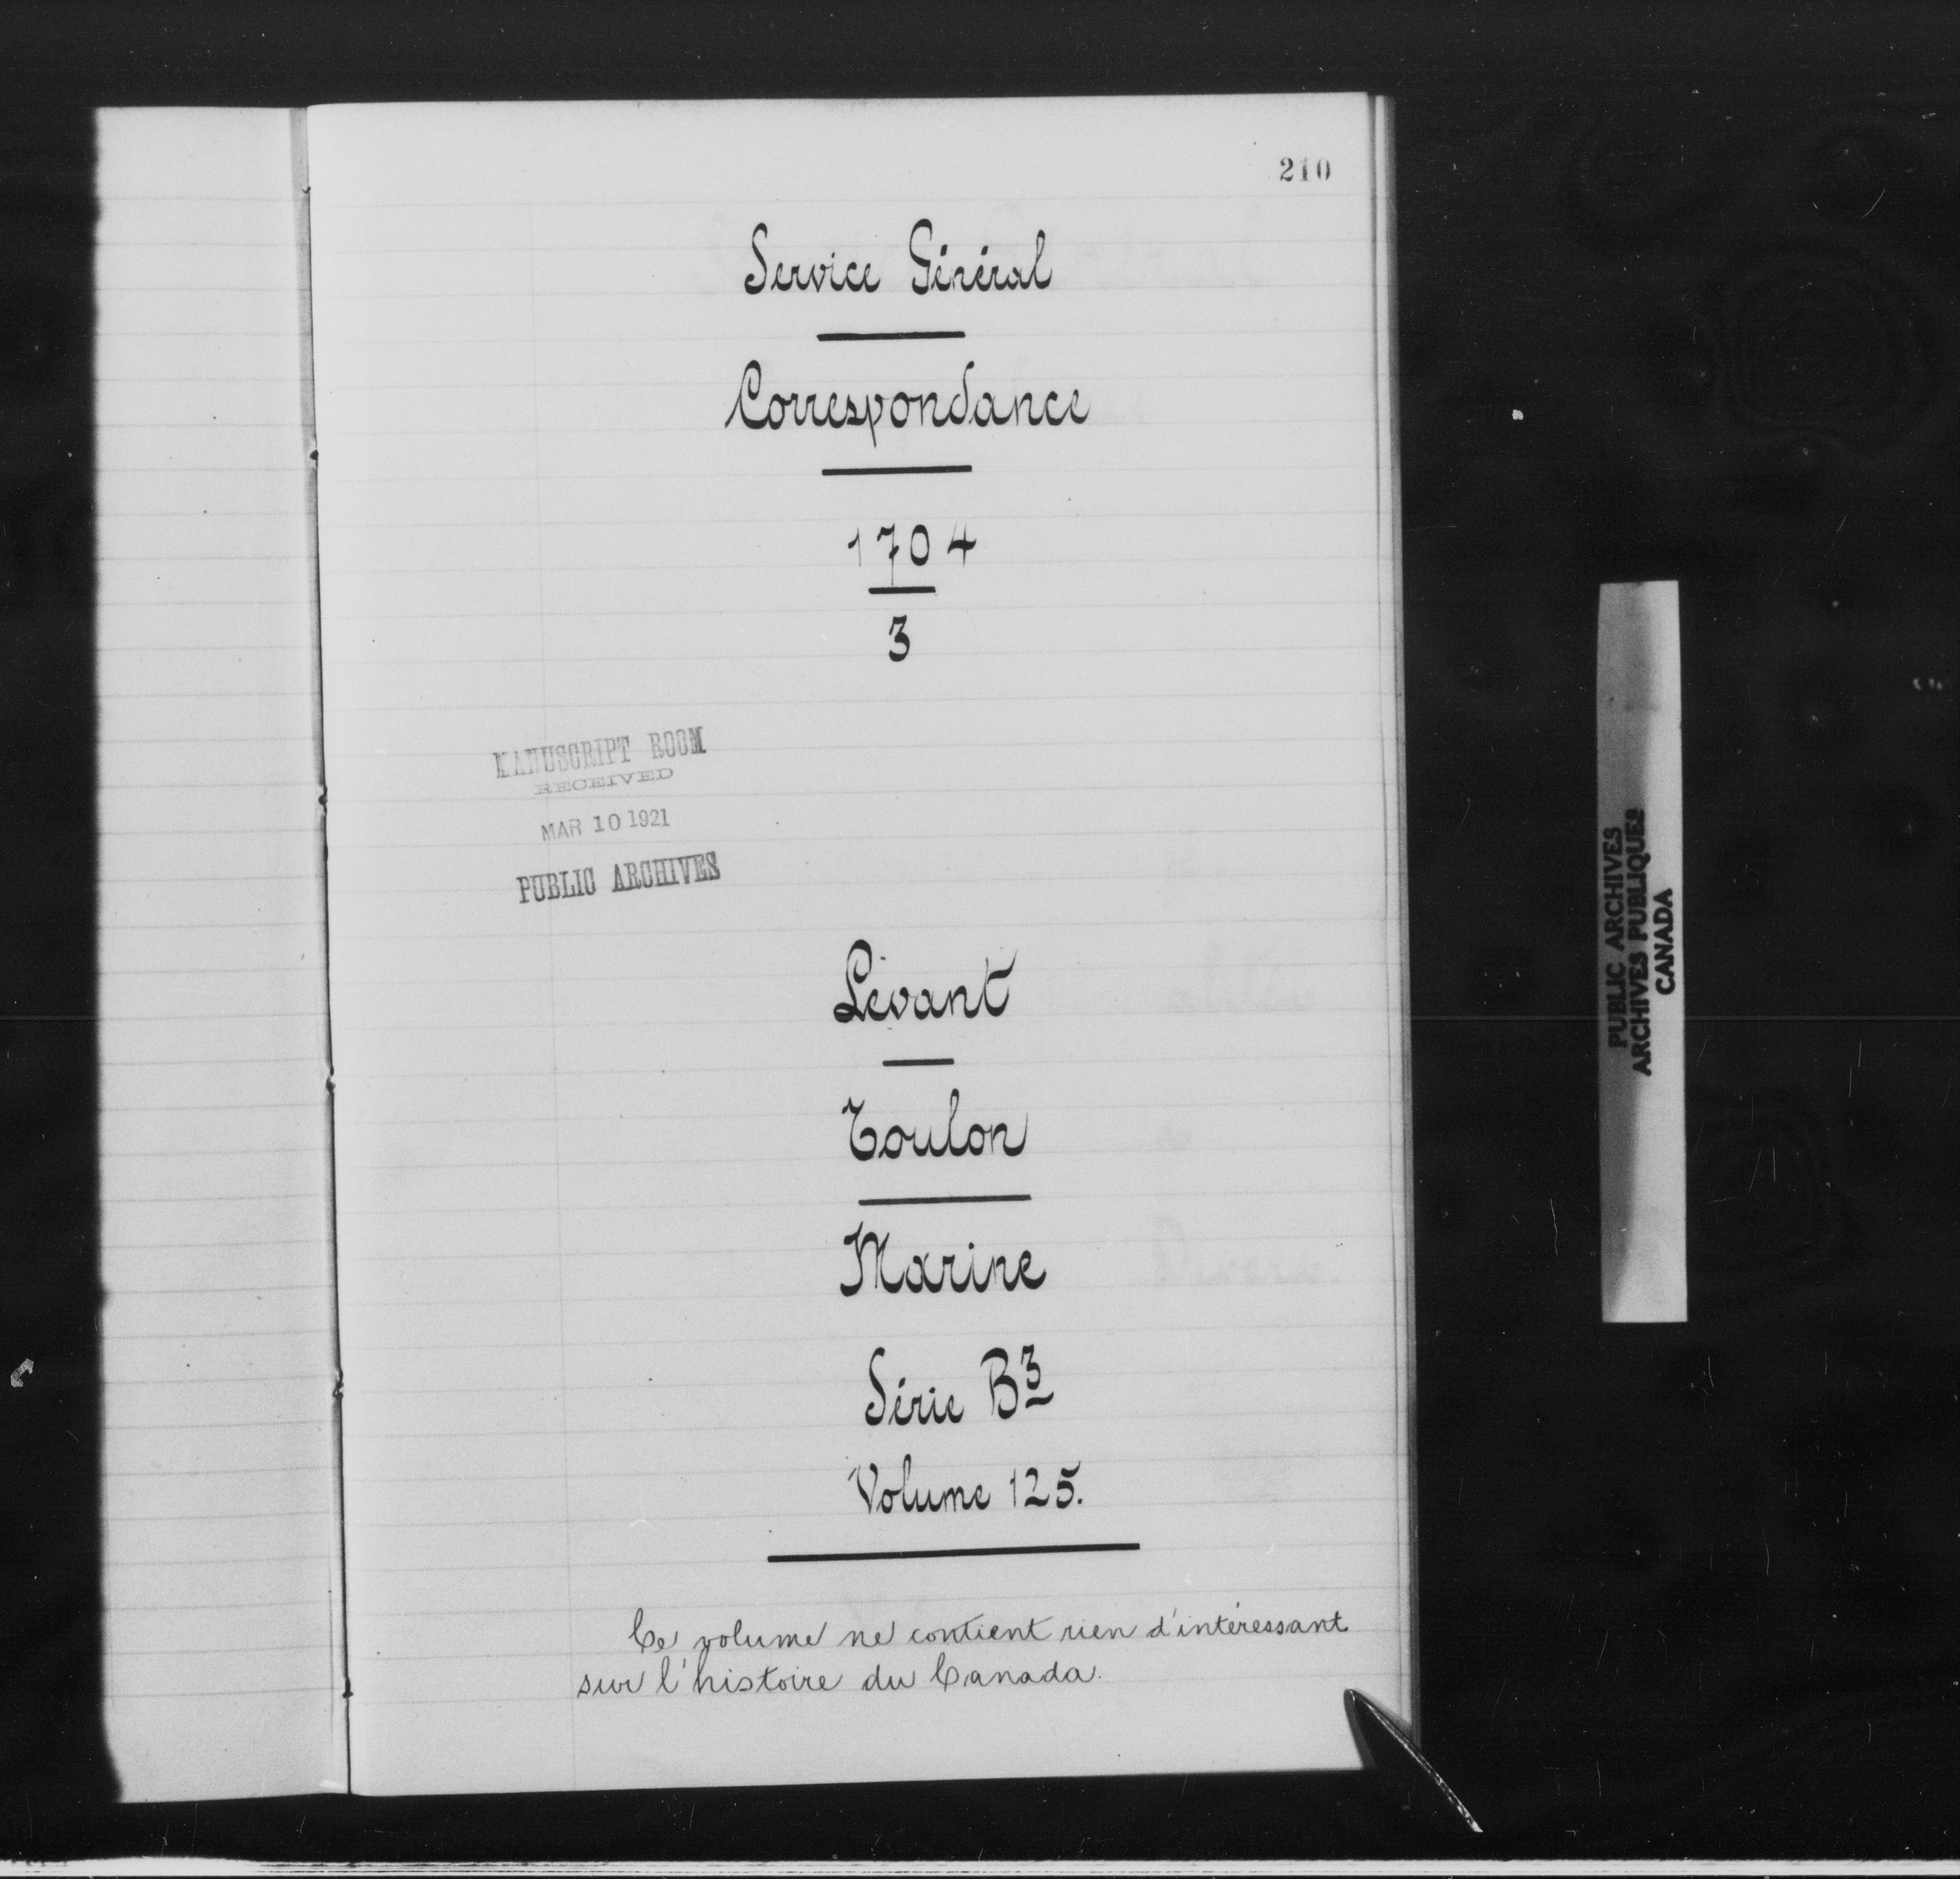 210
Service Général
Correspondance
1704
3
MANUSCRIPT ROOM
RECEIVED
MAR 10 1921
PUBLIC ARCHIVES
Levant
Toulon
Marine
Série B3
Volume 125.
Ce volume ne contient rien d'intéressant
sur l'histoire du Canada.
PUBLIC ARCHIVES
ARCHIVES PUBLIQUES
CANADA